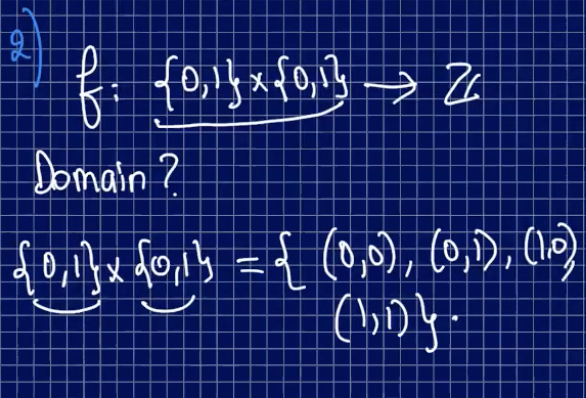 2)
f: {0,1}×{0,1} → ℤ
Domain?
{0,1}×{0,1} = { (0,0), (0,1), (1,0),
(1,1)}.